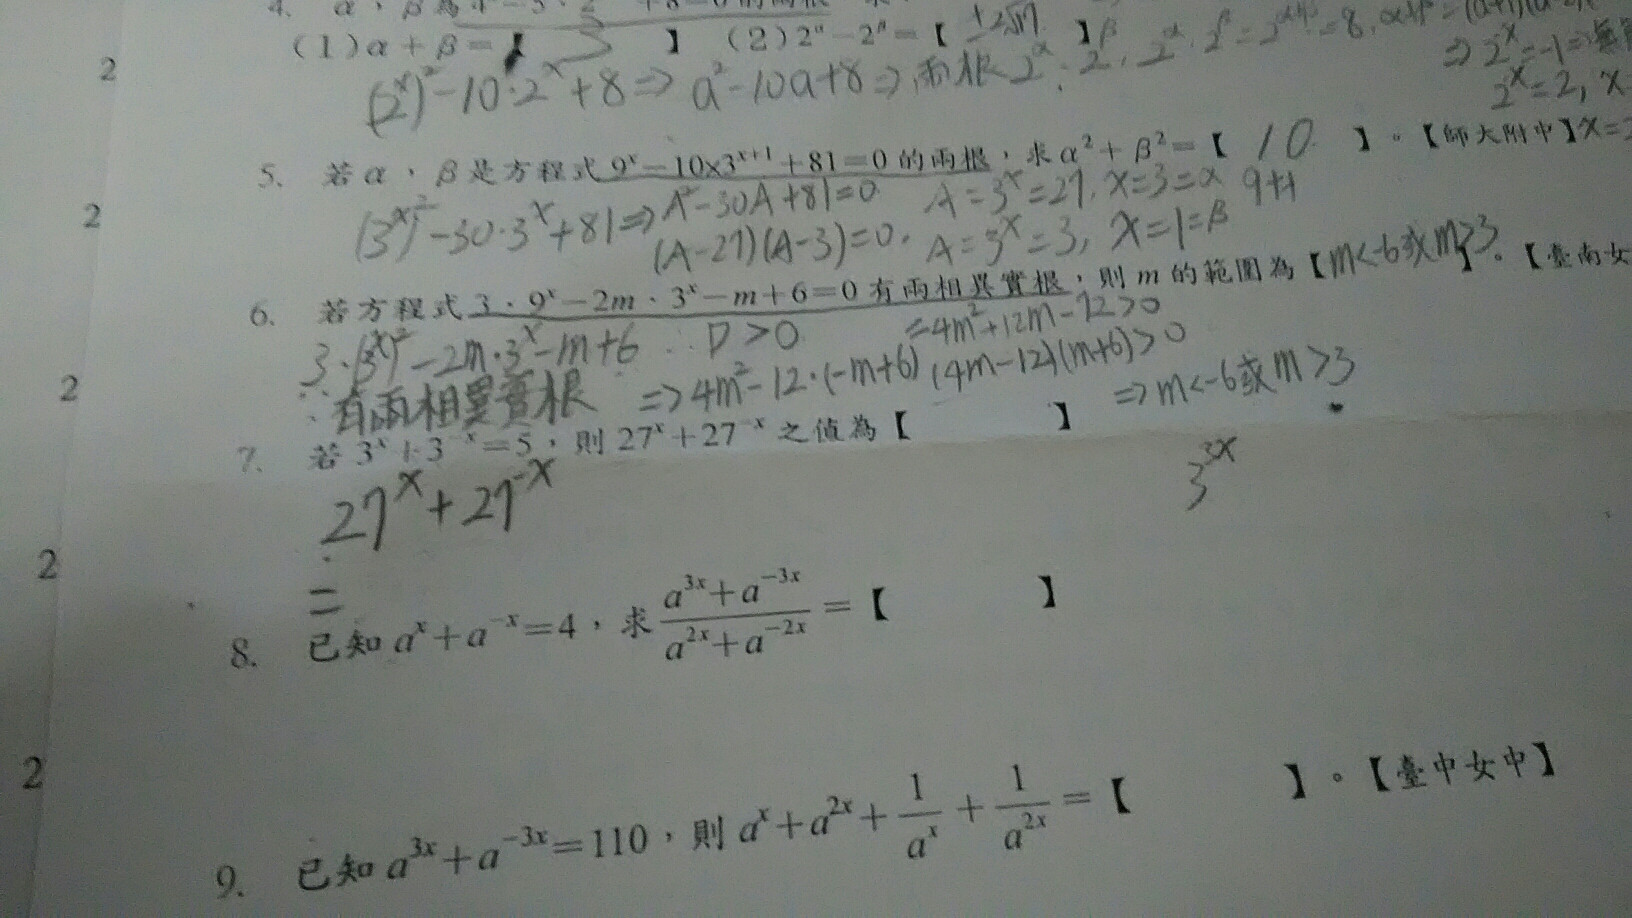 4. α、β為
(1)α+β=【 3 】 (2)2^α-2^β=【 ±2√17 】
2
(2^x)^2-10·2^x+8⇒a^2-10a+8⇒兩根2^α, 2^β, 2^α·2^β=2^(α+β)=8,
⇒2^x=-1⇒
2^x=2, x
5. 若α、β是方程式9^x-10×3^(x+1)+81=0的兩根,求α^2+β^2=【 10 】。【師大附中】
2
(3^x)^2-30·3^x+81⇒A^2-30A+81=0 A=3^x=27, x=3=α 9+1
(A-27)(A-3)=0, A=3^x=3, x=1=β
6. 若方程式3·9^x-2m·3^x-m+6=0有兩相異實根,則m的範圍為【m<-6或m>3】。【臺南女
3·(3^x)^2-2m·3^x-m+6 ∴D>0 =4m^2+12m-72>0
2
∵有兩相異實根 ⇒4m^2-12·(-m+6) (4m-12)(m+6)>0 ⇒m<-6或m>3
7. 若3^x+3^-x=5,則27^x+27^-x之值為【 】
27^x+27^-x 3^3x
2
=
8. 已知a^x+a^-x=4,求(a^3x+a^-3x)/(a^2x+a^-2x)=【 】
2
9. 已知a^3x+a^-3x=110,則a^x+a^2x+1/a^x+1/a^2x=【 】。【臺中女中】